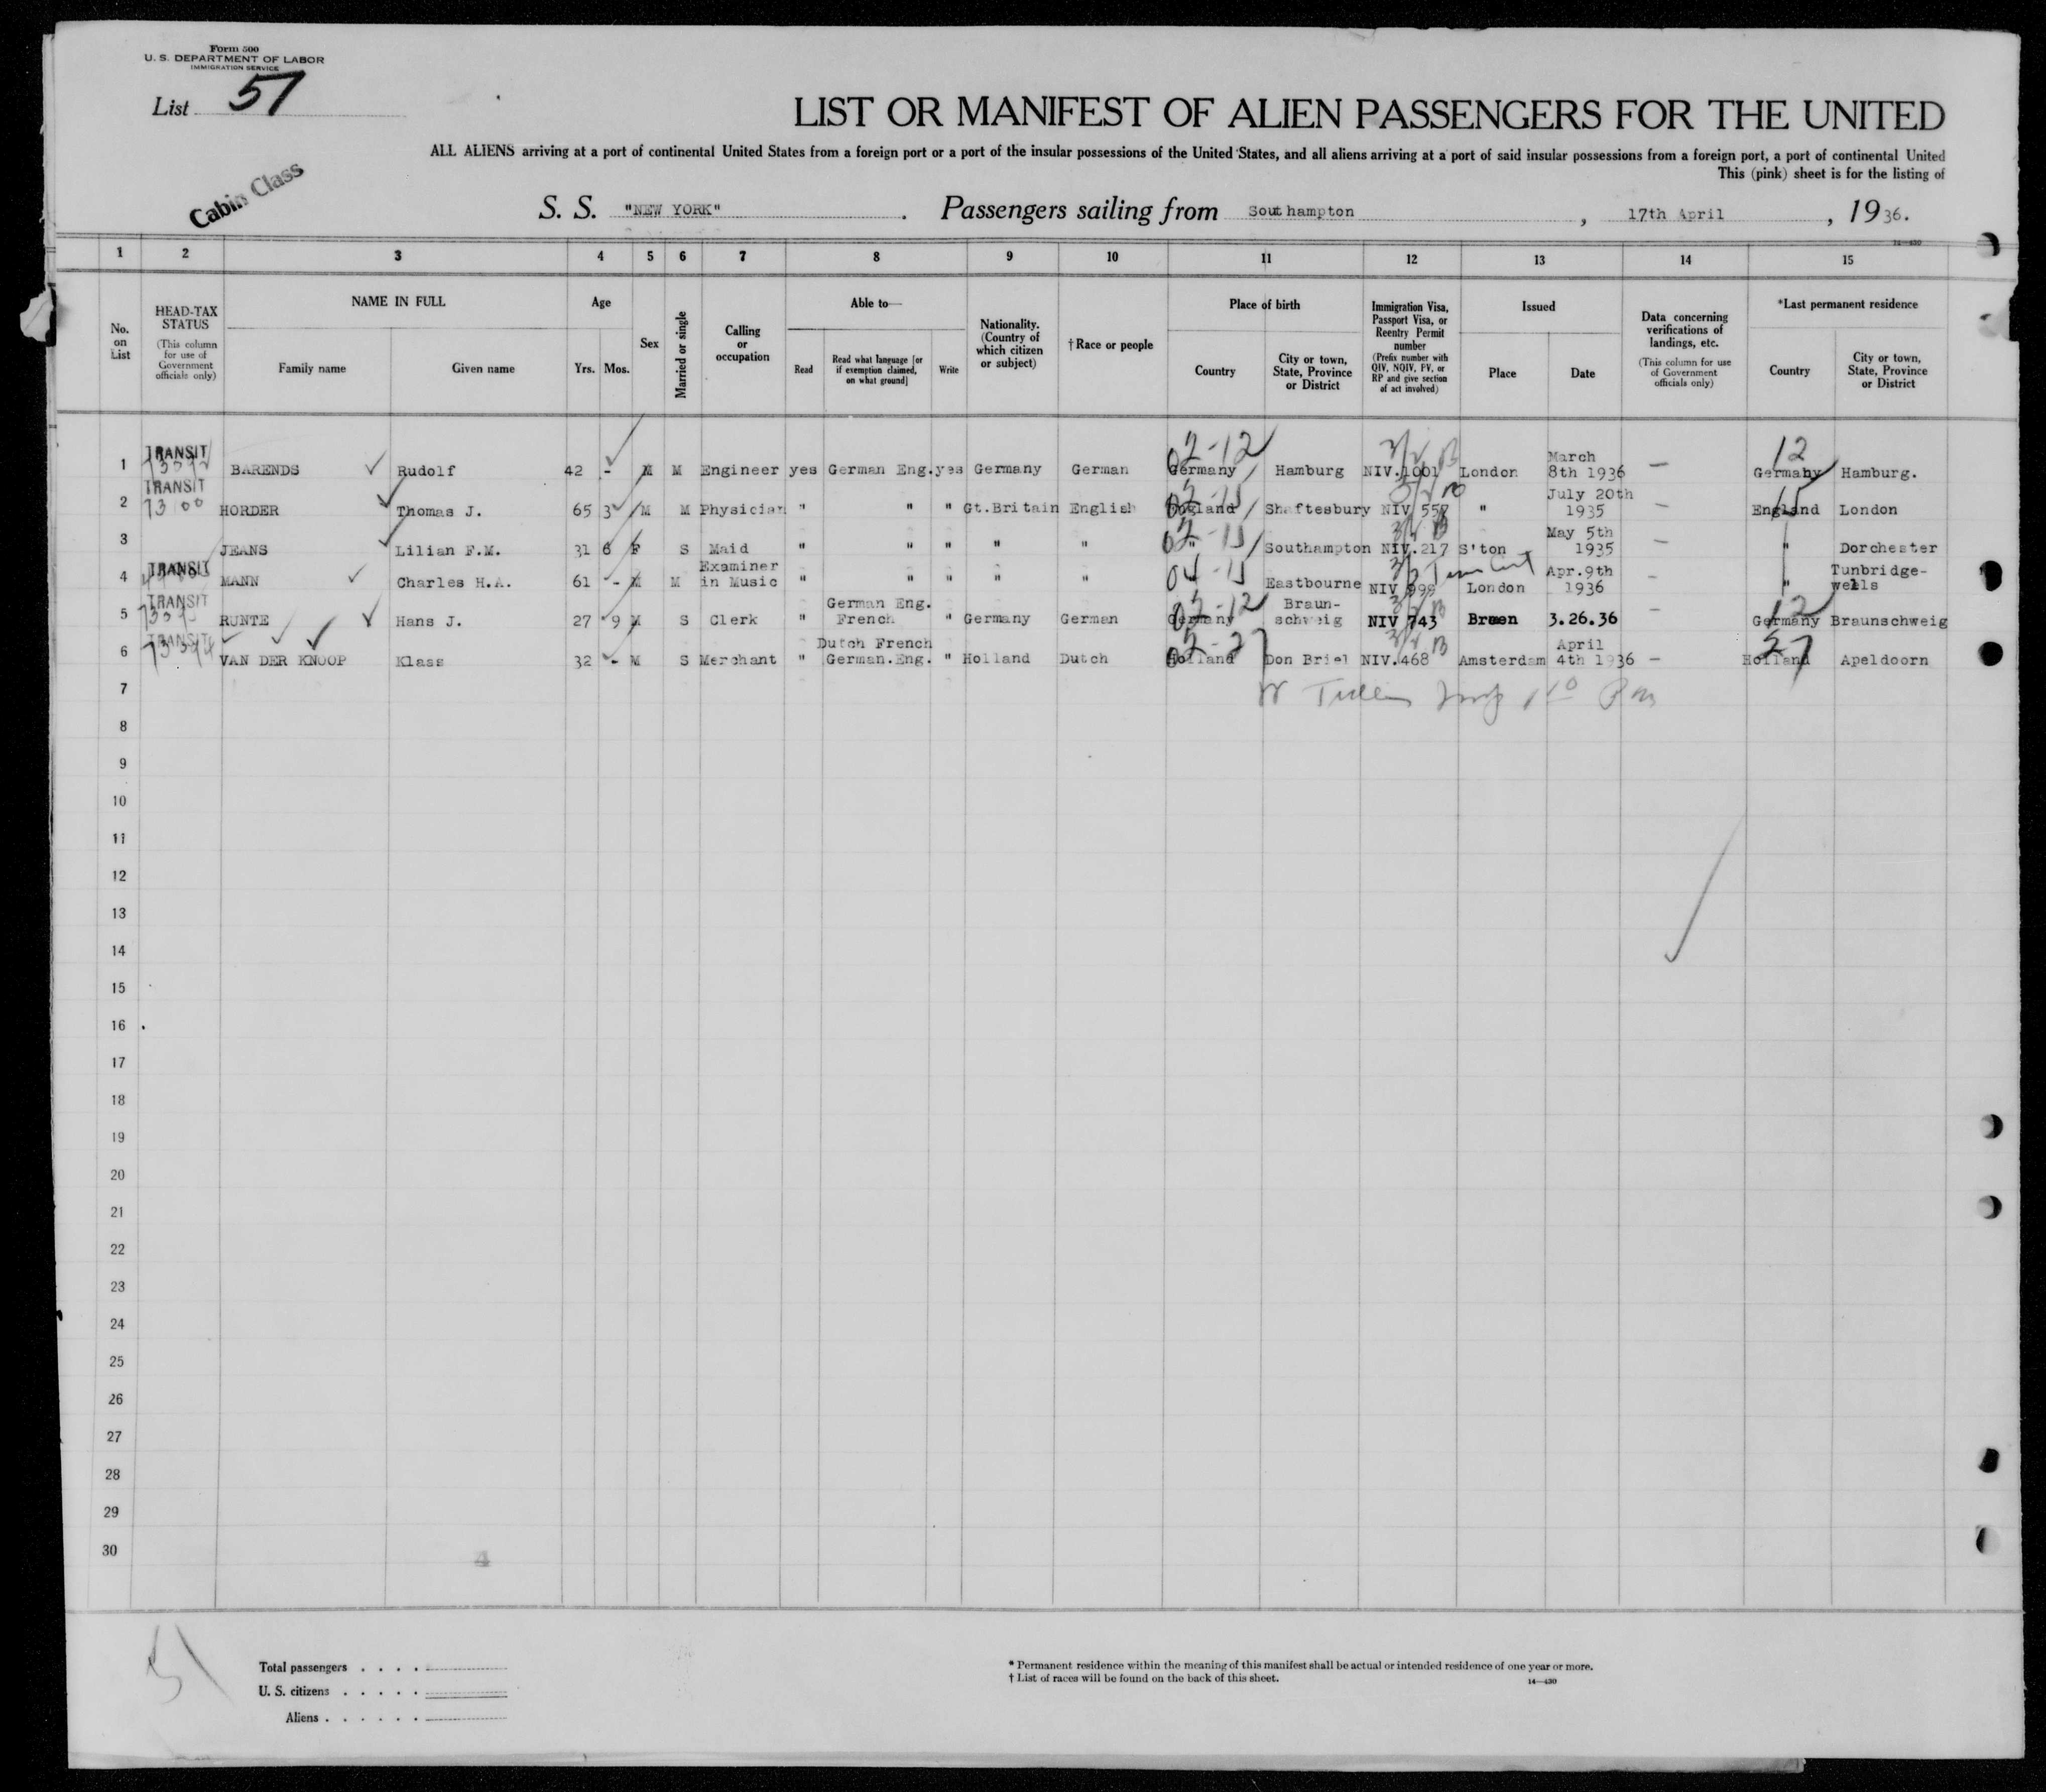 Form 500
U. S. DEPARTMENT OF LABOR
IMMIGRATION SERVICE
List 51
LIST OR MANIFEST OF ALIEN PASSENGERS FOR THE UNITED
ALL ALIENS arriving at a port of continental United States from a foreign port or a port of the insular possessions of the United States, and all aliens arriving at a port of said insular possessions from a foreign port, a port of continental United
This (pink) sheet is for the listing of
Cabin Class
S. S. "NEW YORK" . Passengers sailing from Southampton , 17th April , 1936.
14—430
1 2 3 4 5 6 7 8 9 10 11 12 13 14 15
No. on List
HEAD-TAX STATUS
(This column for use of Government officials only)
NAME IN FULL
Family name
Given name
Age
Yrs. Mos.
Sex
Married or single
Calling or occupation
Able to—
Read
Read what language [or if exemption claimed, on what ground]
Write
Nationality. (Country of which citizen or subject)
†Race or people
Place of birth
Country
City or town, State, Province or District
Immigration Visa, Passport Visa, or Reentry Permit number
(Prefix number with QIV, NQIV, PV, or RP and give section of act involved)
Issued
Place
Date
Data concerning verifications of landings, etc.
(This column for use of Government officials only)
*Last permanent residence
Country
City or town, State, Province or District
TRANSIT 02-12 March 12
1 BARENDS Rudolf 42 - M M Engineer yes German Eng. yes Germany German Germany Hamburg NIV. 1001 London 8th 1936 — Germany Hamburg.
TRANSIT 02-15 July 20th 15
2 HORDER Thomas J. 65 3 M M Physician " " " Gt.Britain English England Shaftesbury NIV 557 " 1935 — England London
02-15 May 5th
3 JEANS Lilian F.M. 31 6 F S Maid " " " " " " Southampton NIV. 217 S'ton 1935 — " Dorchester
TRANSIT Examiner 04-15 Apr.9th Tunbridge-
4 MANN Charles H.A. 61 - M M in Music " " " " " " Eastbourne NIV 999 London 1936 — " wells
TRANSIT German Eng. 02-12 Braun- 12
5 RUNTE Hans J. 27 9 M S Clerk " French " Germany German Germany schweig NIV 743 3.26.36 — Germany Braunschweig
TRANSIT Dutch French 02-27 April 27
6 VAN DER KNOOP Klass 32 - M S Merchant " German.Eng. " Holland Dutch Holland Don Briel NIV.468 Amsterdam 4th 1936 — Holland Apeldoorn
7
8
9
10
11
12
13
14
15
16
17
18
19
20
21
22
23
24
25
26
27
28
29
30
4
51
Total passengers . . . .
U. S. citizens . . . . .
Aliens . . . . . .
* Permanent residence within the meaning of this manifest shall be actual or intended residence of one year or more.
† List of races will be found on the back of this sheet.
14—430